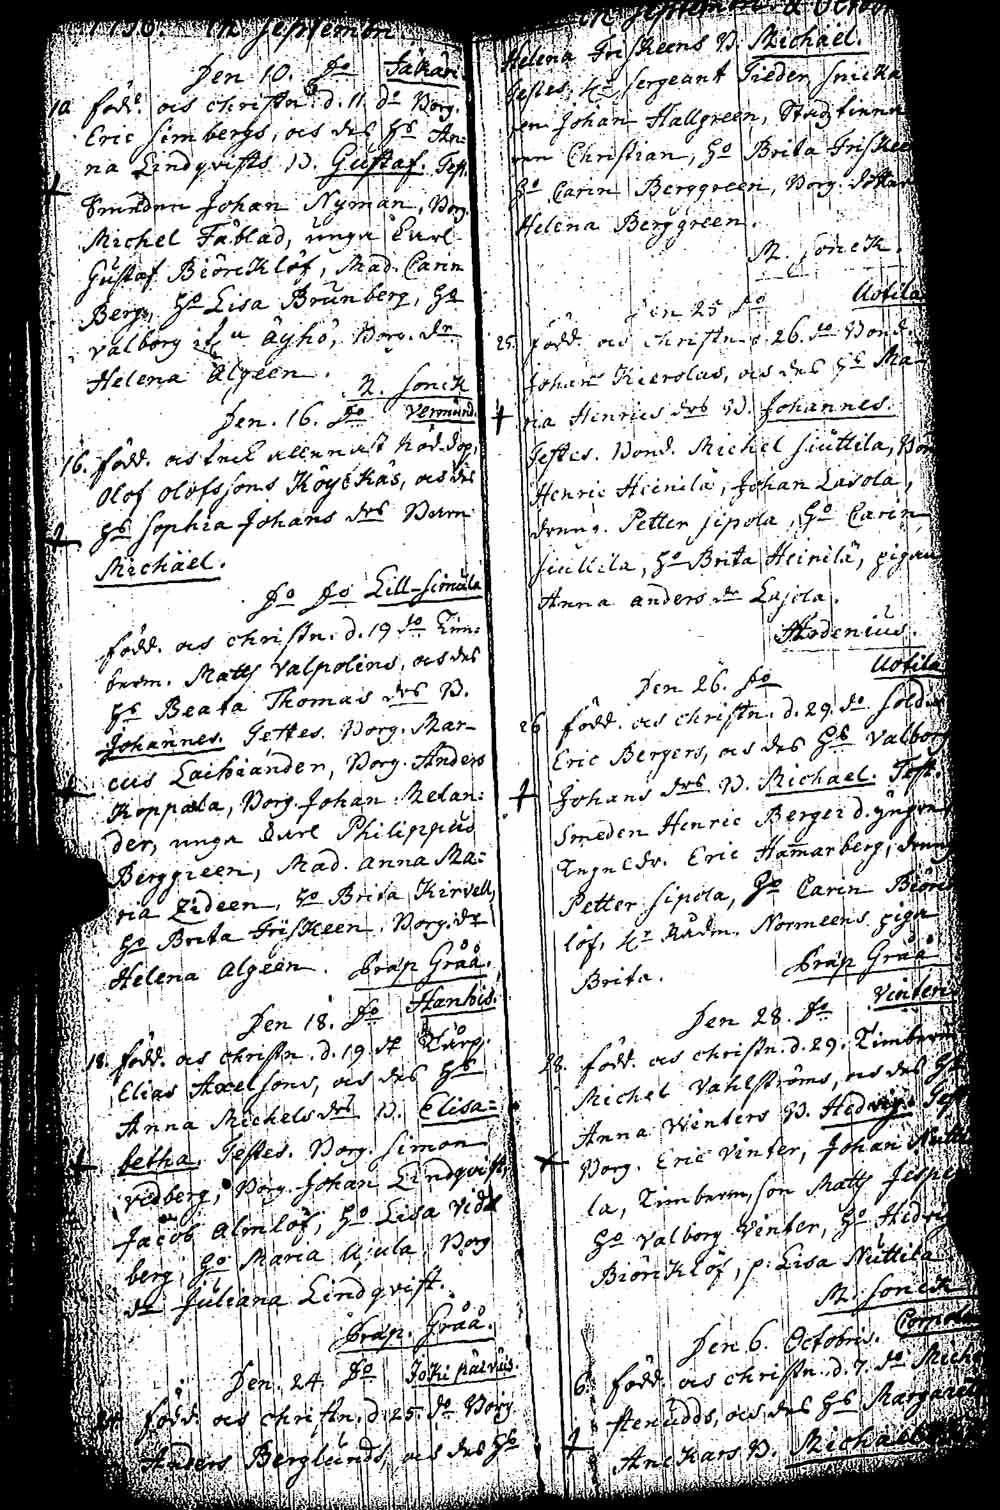 In Septembri.
Den 10. do Jakari
10. född. och christn. d. 11. do Borg.
Eric Simbergs, och des Hs An-
na Lindqvists B. Gustaf. Test.
Johan Nyman, Borg.
Michel Fablad, unga Carl
Gustaf Biörcklöf, Mad. Carin
Berg, Ho Lisa Brunberg, Ho
Valborg Äyhö, Borg. dr
Helena Algeen.
N. Sonck
Den. 16. do Vermund.
16. född. och nöd döp.
Olof Olofssons Köyckäs, och des
Hs Sophia Johans drs Barn
Michaël.
do do Lill-Simula
född. och christn. d. 19 do Tim-
berm. Matts Valpolins, och des
Hs Beata Thomas drs B.
Johannes. Testes. Borg. Mar-
cus Laihiander, Borg. Anders
Koppala, Borg. Johan Melan-
der, unga Carl Philippus
Berggreen, Mad. Anna Ma-
ria Zideen, Ho Brita Kirvell,
Ho Brita Friskeen, Borg. dr
Helena Algeen. Præp Gråå.
Den 18. do Hanhis.
18. född. och christn. d. 19 do
Elias Axelsons, och des Hs
Anna Michels drs B. Elisa-
betha. Testes. Borg. Simon
Vidberg, Borg. Johan Lindqvist,
Jacob Almlöf, Ho Lisa Vid-
berg, Ho Maria Ajula, Borg
dr Juliana Lindqvist.
Præp. Gråå.
Den. 24 do Jokiparvus.
24. född. och christn. d. 25. do Borg.
Anders Berglunds, och des Hs
In Septembri & Octobri
Helena Friskeens B. Michaël.
Testes, Hr Sergeant Tieder, Snicka
ren Johan Hallgreen,
Christian, Ho Brita Friskee
Ho Carin Berggreen, Borg. dottren
Helena Berggreen.
N. Sonck.
Den 25 do Uotila
25. född. och christn. d. 26. do Bond.
Johan Kierolas, och des Hs Ma-
ria Henrics drs B. Johannes.
Testes. Bond. Michel Siuttila, Bon
Henric Heinilä, Johan Lasola,
dreng. Petter Sipola, Ho Carin
Siuttila, Ho Brita Heinilä, pigan
Anna Anders dr Lasola.
Hodenius.
Uotila
Den 26. do
26 född. och christn. d. 29. do Soldn
Eric Bergers, och des Hs Valborg
Johans drs B. Michael. Test.
Smeden Henric Berger d. yngre,
Eric Hammarberg, dreng
Petter Sipola, Ho Carin Biörck
löf, Hr Rådm. Normeens piga
Brita. Præp Gråå
Den 28. do Vinteri
28. född. och christn. d. 29. Timberm
Michel Vahlströms, och des Hs
Anna Winters B. Hedvig. Test
Borg. Eric Vinter, Johan Nutti
la, Timberm. son Matts Jespe
Ho Valborg Vinter, Ho Hedvig
Biörcklöf, p. Lisa Nuttila
N. Sonck
Den 6. Octobris.
6. född. och christn. d. 7. do Micha
Stenudds, och des Hs Margareta
Anckars B. Michael